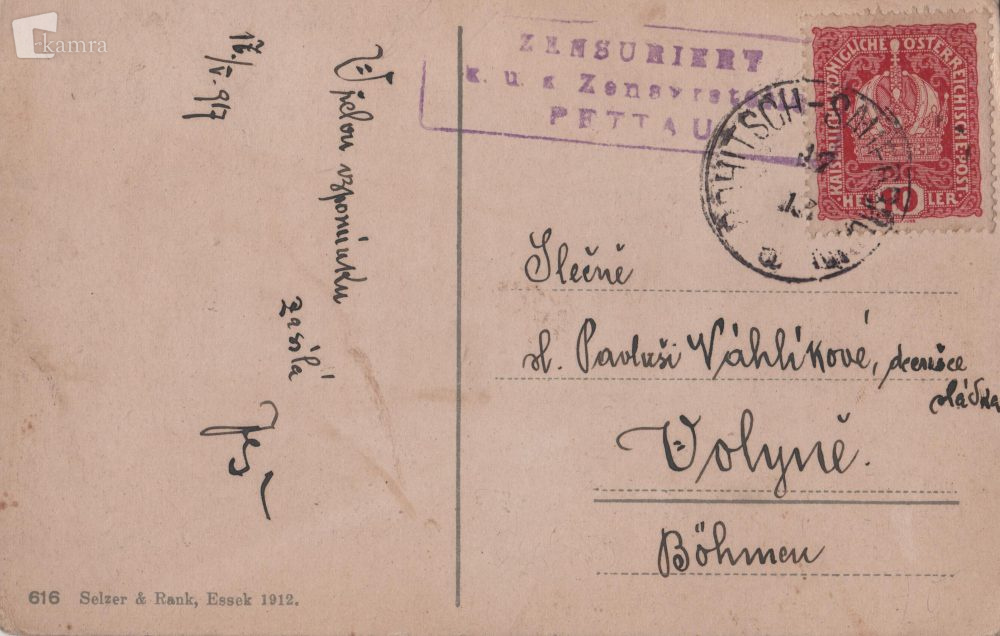 kamra
17./V. 917
Vřelou vzpomínku
zasílá
ZENSURIERT
k. u. k. Zensurstelle
PETTAU
KAISERLICH KÖNIGLICHE ÖSTERREICHISCHE POST
10
HELLER
ROHITSCH-SAUERBRUNN
17
a
Slečně
sl. Pavluši Váhlíkové, dcerušce
sládka
Volyně.
Böhmen
616 Selzer & Rank, Essek 1912.